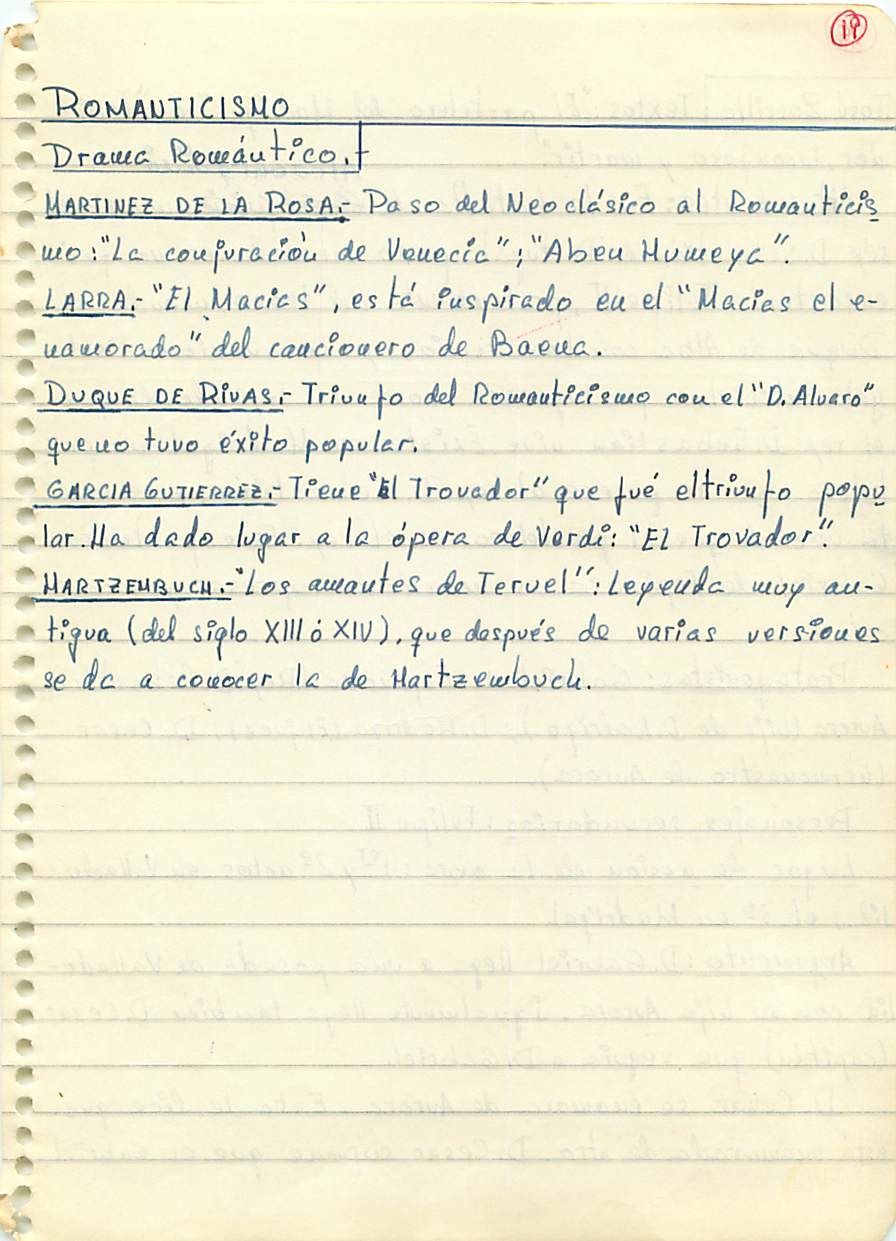 19
ROMANTICISMO
Drama Romántico.
MARTINEZ DE LA ROSA.- Paso del Neoclásico al Romanticis
mo: "La conjuración de Venecia"; "Aben Humeya".
LARRA.- "El Macias", está inspirado en el "Macias el e-
namorado" del cancionero de Baena.
DUQUE DE RIVAS.- Triunfo del Romanticismo con el "D. Alvaro"
que no tuvo éxito popular.
GARCIA GUTIERREZ.- Tiene "El Trovador" que fué el triunfo popu
lar. Ha dado lugar a la ópera de Verdi: "El Trovador".
HARTZEMBUCH.- "Los amantes de Teruel": Leyenda muy an-
tigua (del siglo XIII ó XIV), que después de varias versiones
se da a conocer la de Hartzembuch.